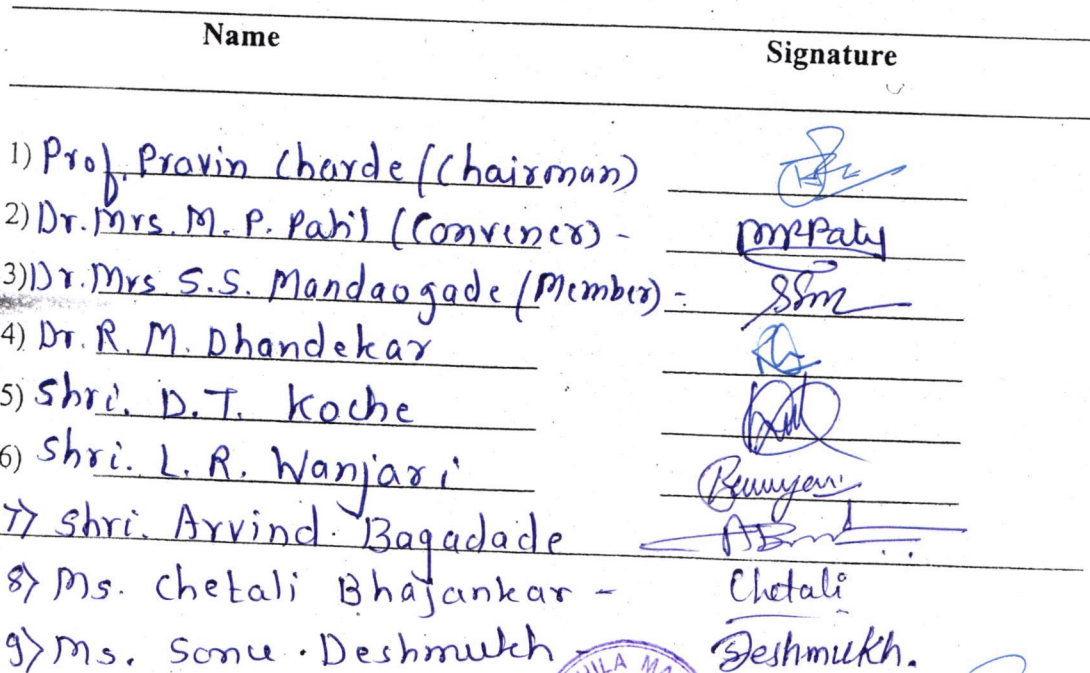 Name Signature
1) Prof. Pravin Charde (Chairman)
2) Dr. Mrs. M. P. Patil (Convener) - MPPatil
3) Dr. Mrs S.S. Mandaogade (Member) - SSm
4) Dr. R. M. Dhandekar
5) Shri. D.T. Koche
6) Shri. L. R. Wanjari
7) Shri. Arvind. Bagadade
8) Ms. Chetali Bhajankar - Chetali
9) Ms. Sonu. Deshmukh - Deshmukh.